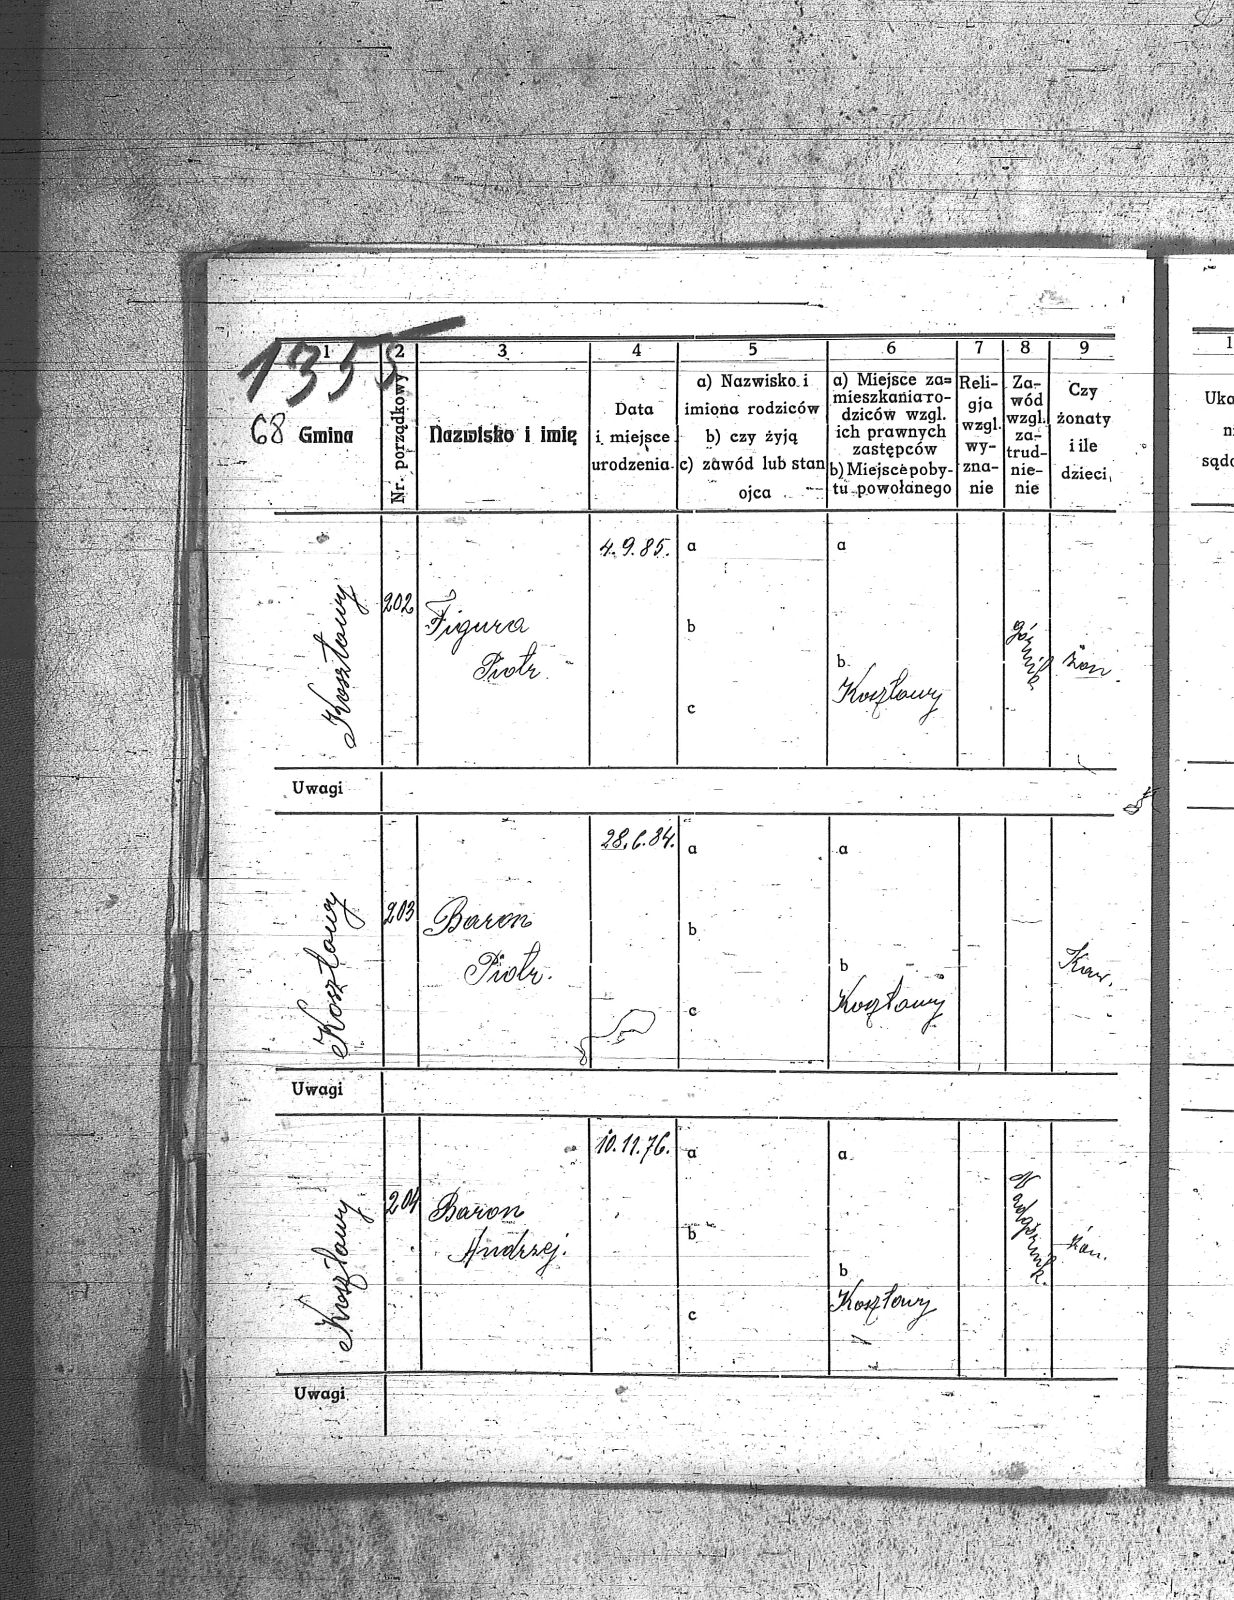 1355
68
1 2 3 4 5 6 7 8 9
Gmina
Nr. porządkowy
Nazwisko i imię
Data
i miejsce
urodzenia
a) Nazwisko i
imiona rodziców
b) czy żyją
c) zawód lub stan
ojca
a) Miejsce za=
mieszkania ro-
dziców wzgl.
ich prawnych
zastępców
b) Miejsce poby-
tu powołanego
Reli-
gja
wzgl.
wy-
zna-
nie
Za-
wód
wzgl.
za-
trud-
nie-
nie
Czy
żonaty
i ile
dzieci
1
Uka
sądo
Kosztowy
202
Figura
Piotr
4.9.85.
a
b
c
a
b
Kosztowy
górnik
żon.
Uwagi
Kosztowy
203
Baron
Piotr.
28.6.84.
a
b
c
a
b
Kosztowy
Kaw.
Uwagi
Kosztowy
204
Baron
Andrzej.
10.11.76.
a
b
c
a
b
Kosztowy
Nadgórnik.
żon.
Uwagi